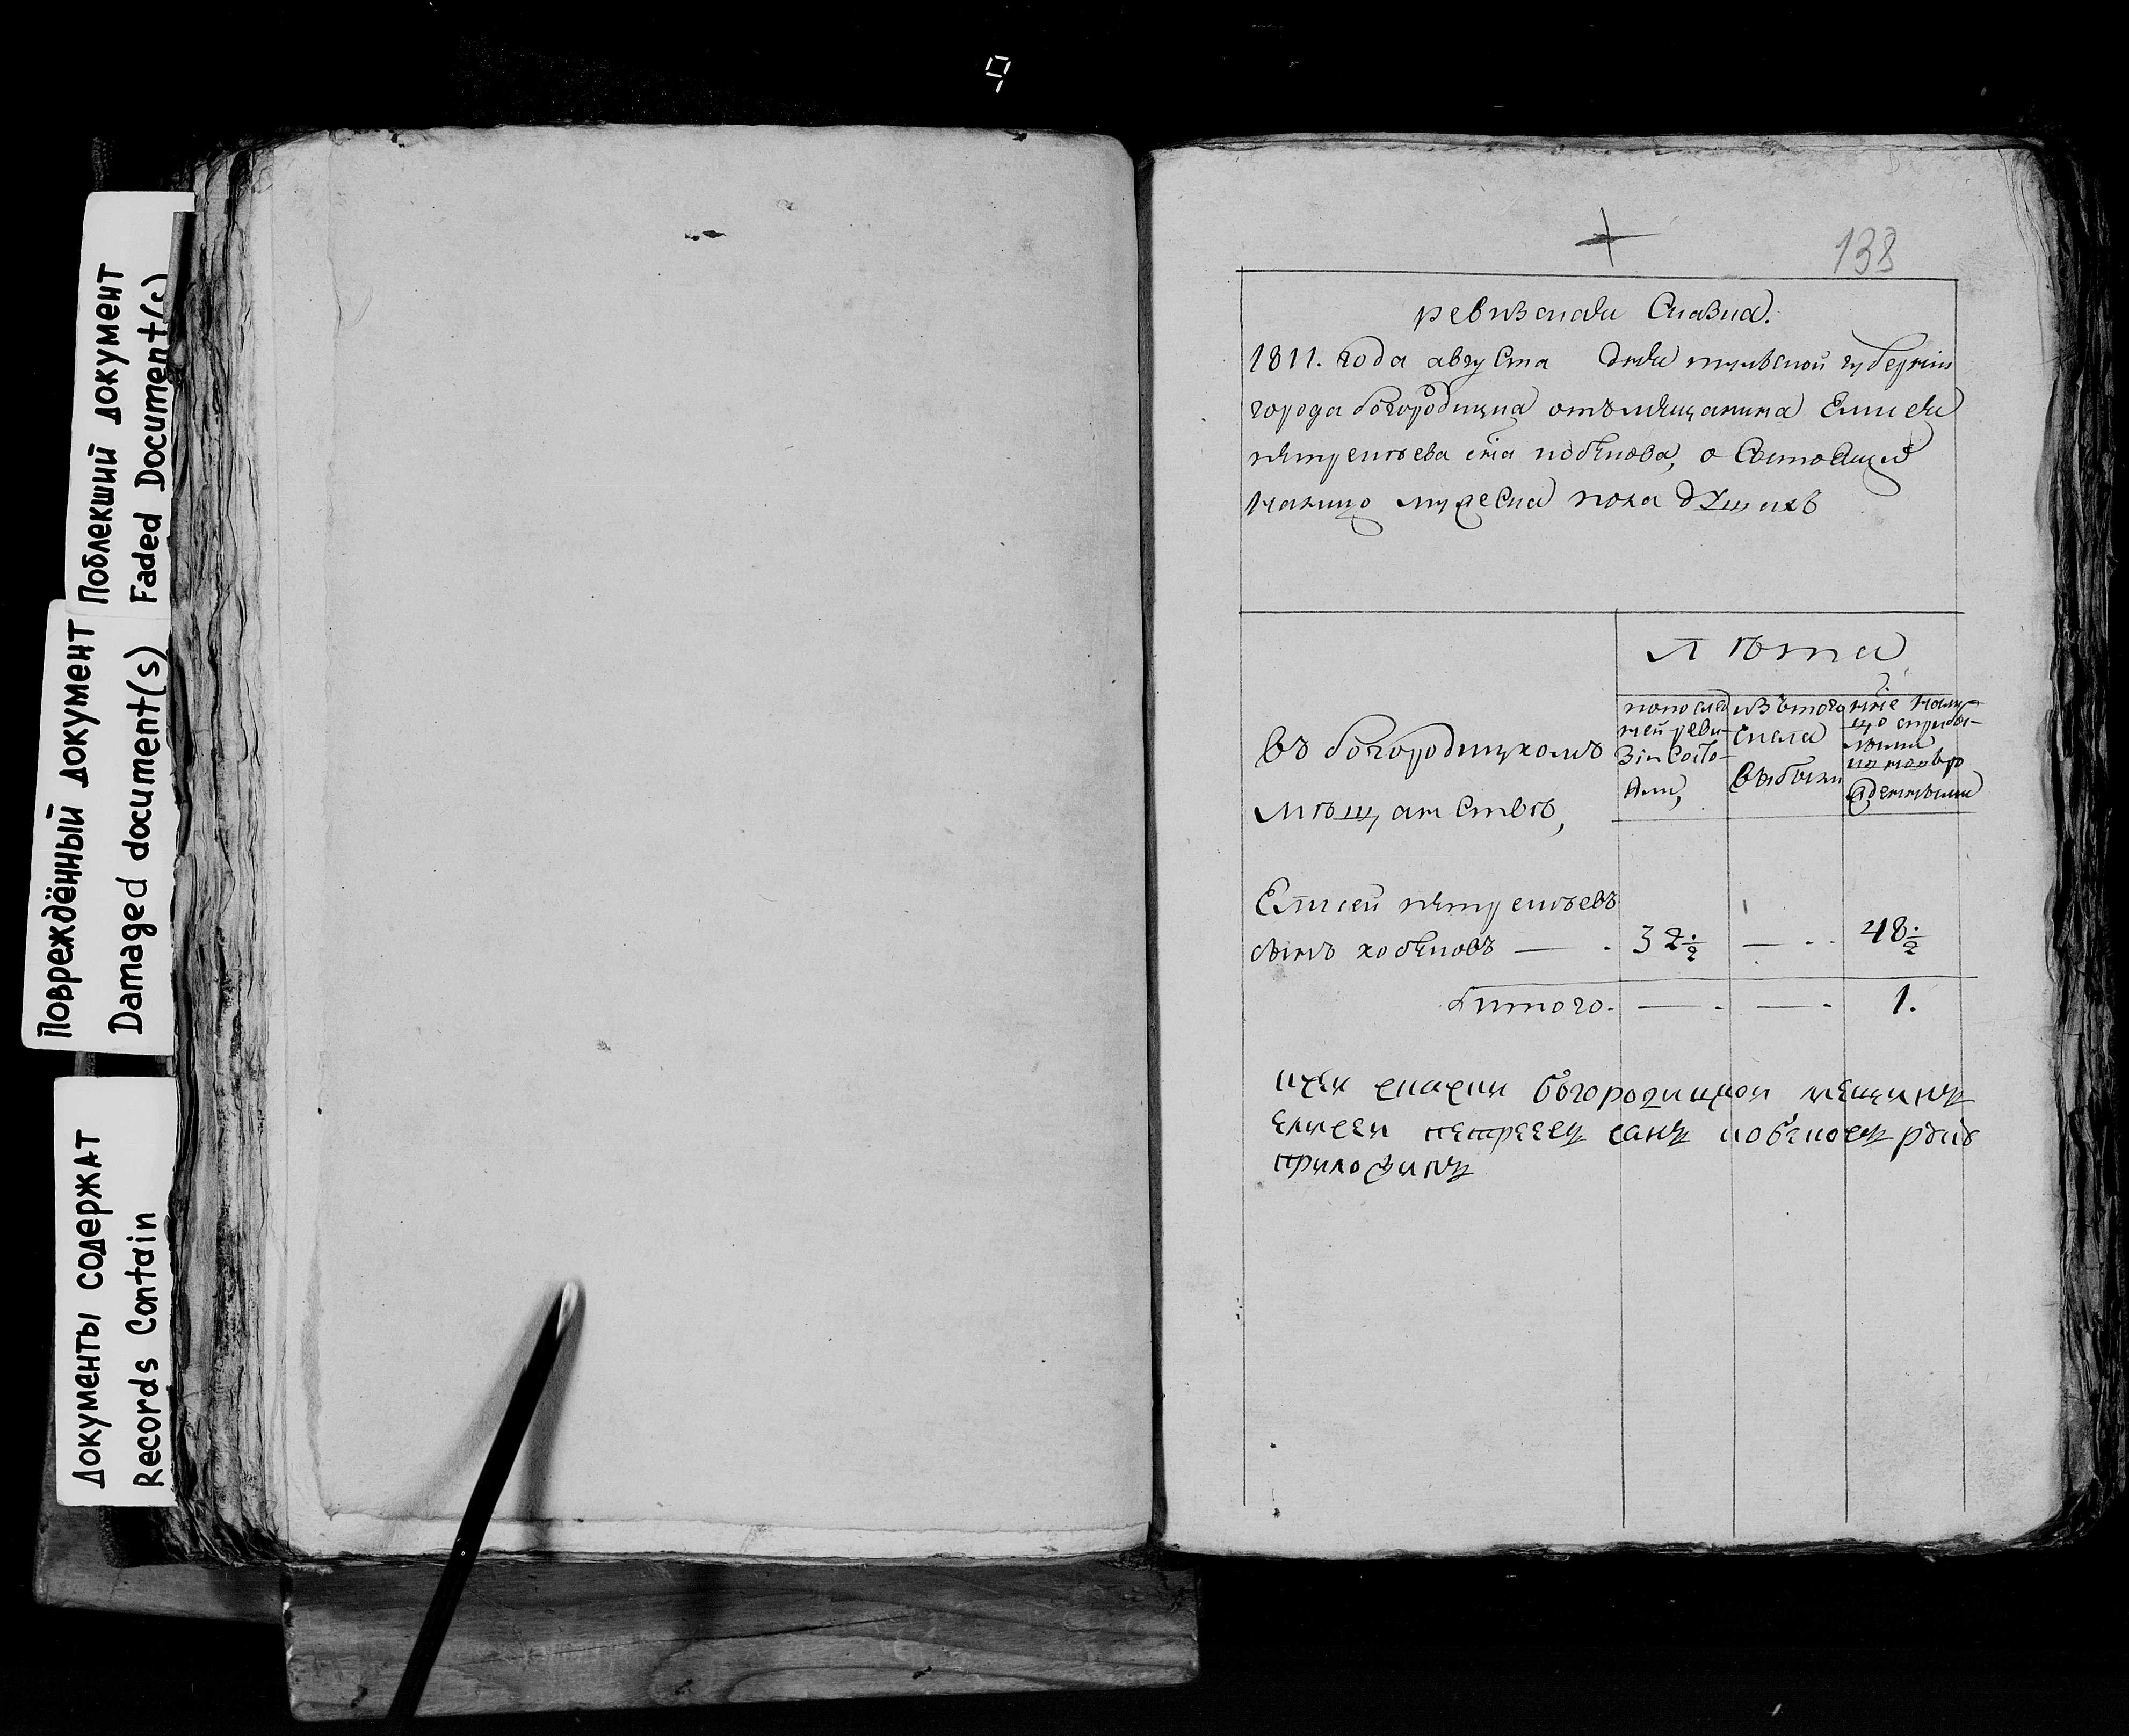 9
Поблекший документ
Faded Document(s)
Повреждённый документ
Damaged document(s)
Документы содержат
Records Contain
138
ревизская Сказка.
1811. года августа дня тульской губернiи
города богородицка отъ мещанина Елисея
петрова сна кобякова, о Состоящихъ
налицо мужеска пола душахъ
Лѣта
въ богородицкомъ
мѣщанствѣ,
попослед
ней реви
зiи Состо
яли,
изътого
Числа
выбыли
ныне нали
цо
Елисей
сынъ кобяковъ — . 32 ½ — . . 48 ½
итого. — . — . 1.
богородицкой мещанинъ
елисей сынъ кобяковъ руку
приложилъ